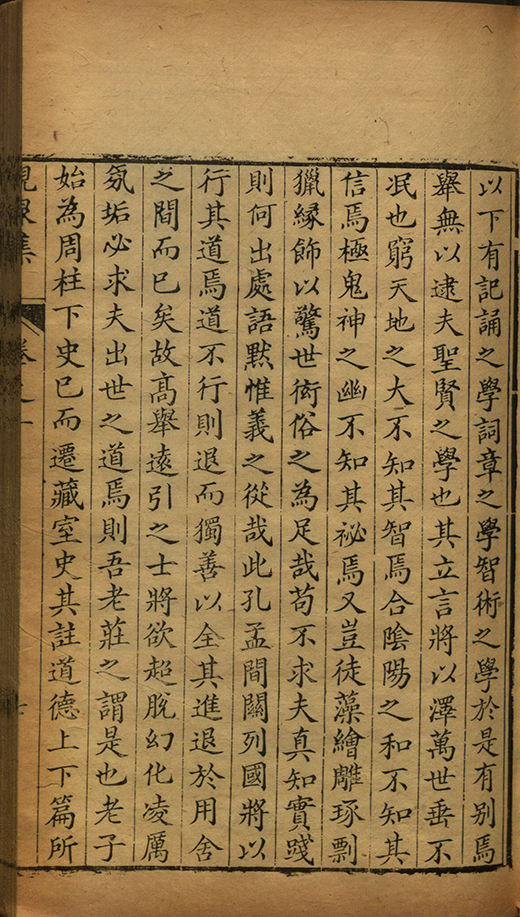 以下有記誦之學詞章之學智術之學於是有别焉
舉無以逮夫聖賢之學也其立言將以澤萬世垂不
冺也窮天地之大不知其智焉合陰陽之和不知其
信焉極鬼神之幽不知其祕焉又豈徒藻繪雕琢剽
獵緣飾以驚世衒俗之為足哉苟不求夫真知實踐
則何出處語默惟義之從哉此孔孟間關列國將以
行其道焉道不行則退而獨善以全其進退於用舍
之間而已矣故高舉遠引之士將欲超脫幻化凌厲
氛垢必求夫出世之道焉則吾老莊之謂是也老子
始為周柱下史已而遷藏室史其註道德上下篇所
峴泉集
卷之一